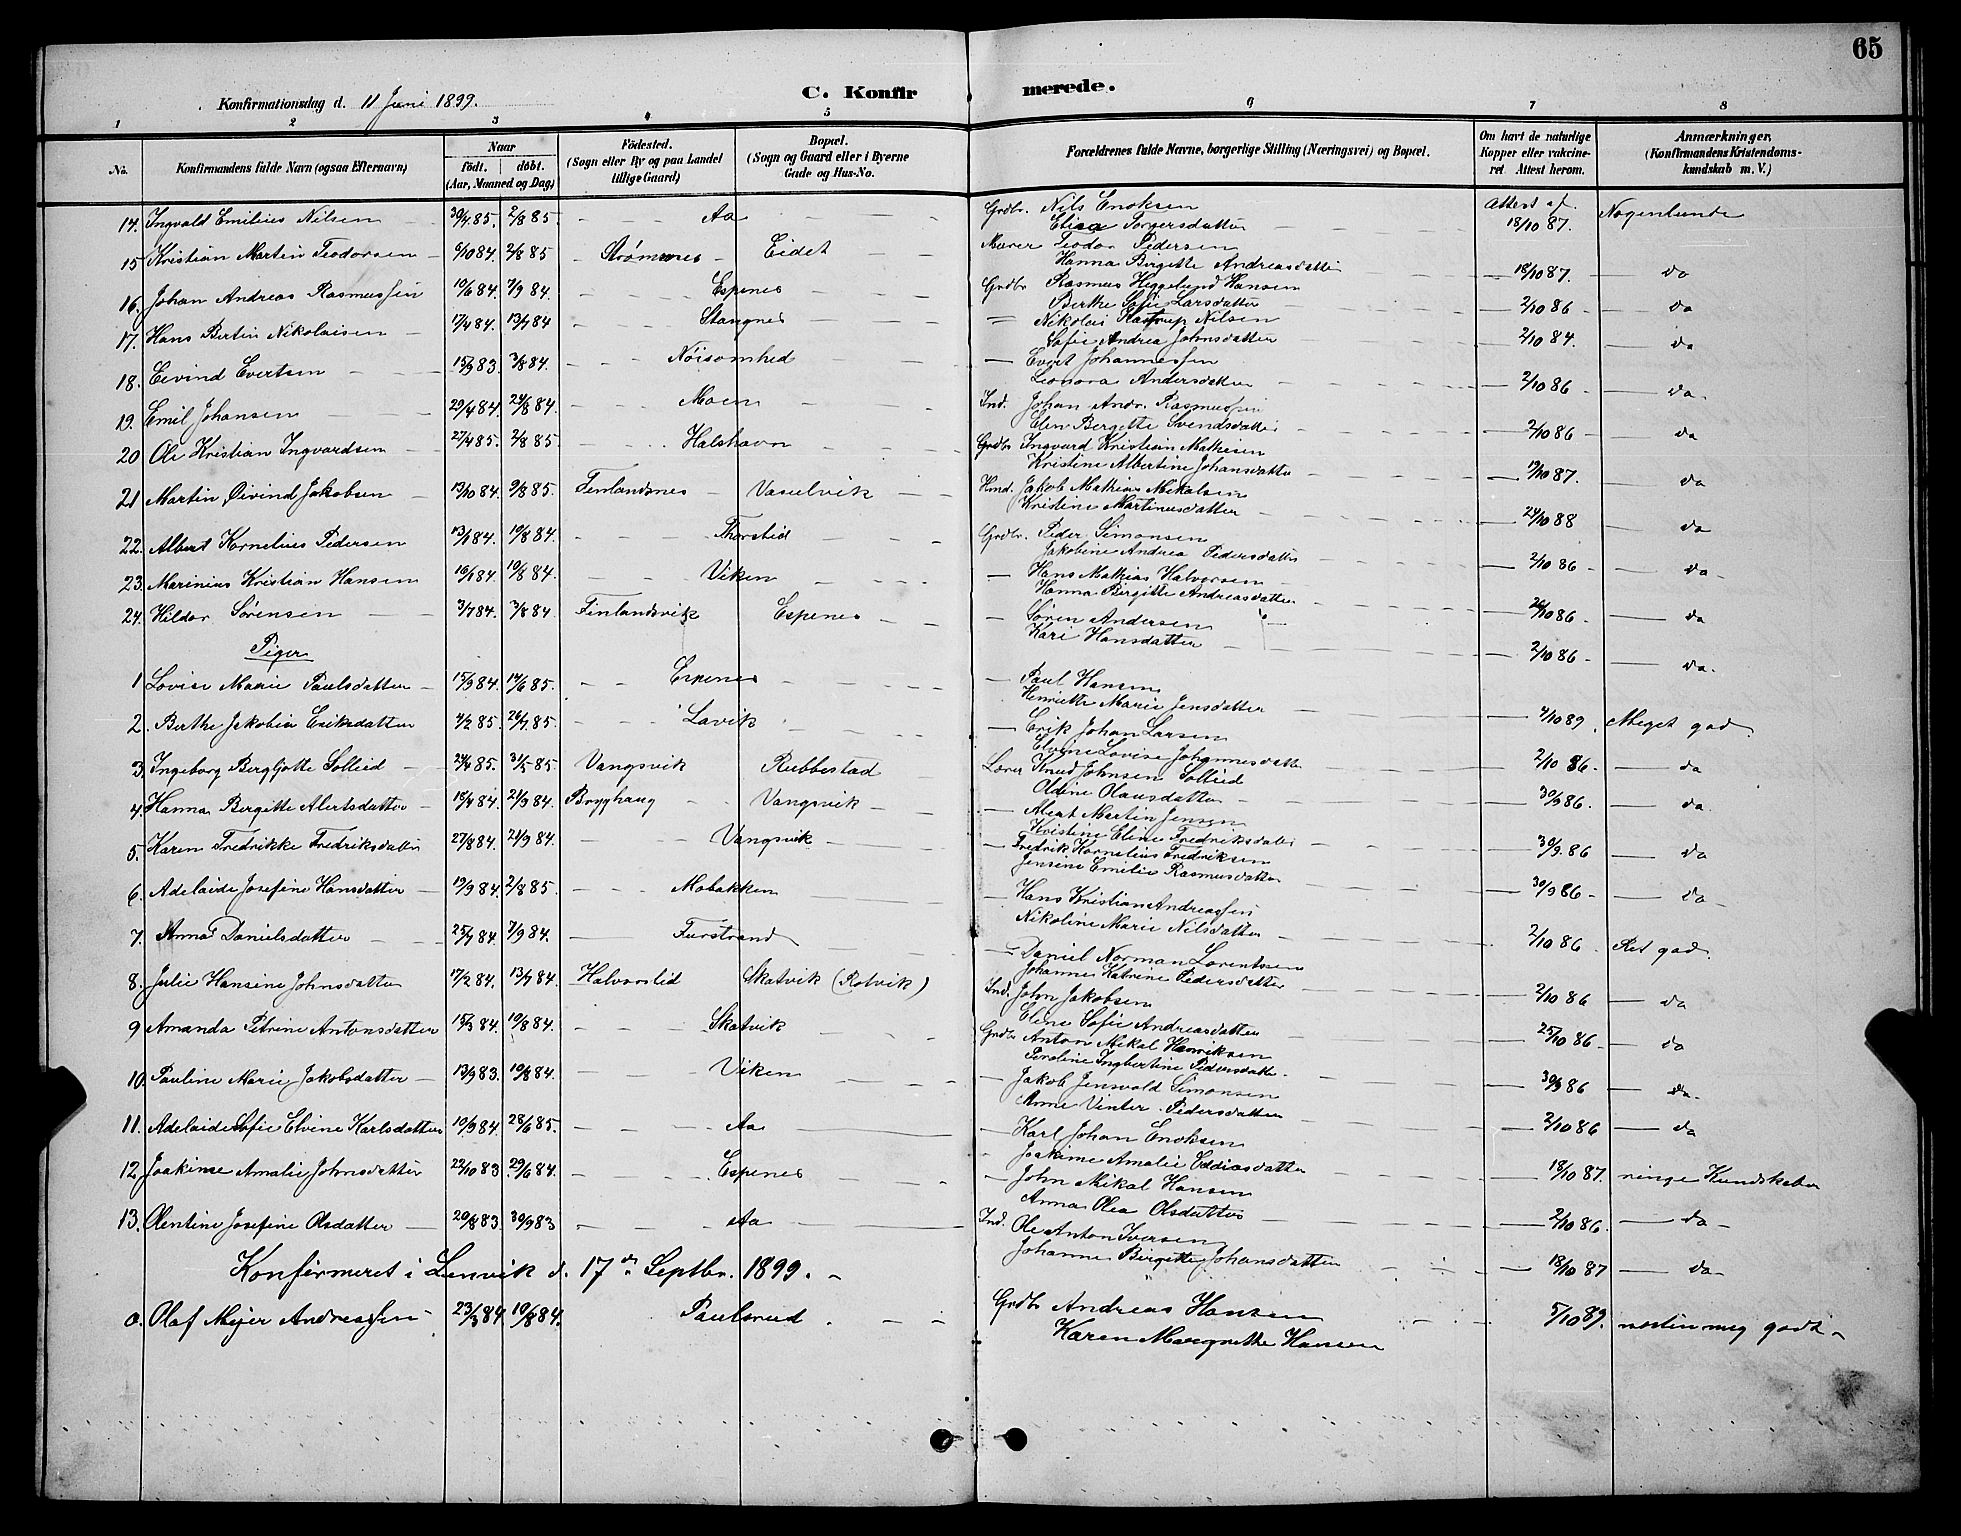 65
Konfirmationsdag d. 11 Juni 1899.
C. Konfirmerede.
1 2 3 4 5 6 7 8
No. Konfirmandens fulde Navn (ogsaa Efternavn) Naar födt. döbt. (Aar, Maaned og Dag) Födested. (Sogn eller By og paa Landet tillige Gaard) Bopæl. (Sogn og Gaard eller i Byerne Gade og Hus-No. Forældrenes fulde Navne, borgerlige Stilling (Næringsvei) og Bopæl. Om havt de naturlige Kopper eller vakcineret. Attest herom. Anmærkninger, (Konfirmandens Kristendomskundskab m. V.)
14. Ingvald Emilius Nilsen 30/4 85. 2/8 85 Aa Grdbr. Nils Enoksen Attest af 18/10 87. Nogenlunde
Elisa Torgersdatter
15 Kristian Martin Teodorsen 6/10 84. 2/8 85 Strømmes Eidet Teodor Pedersen 18/10 87. do
Hanna Birgitte Andreasdatter
16. Johan Andreas Rasmussen 10/6 84. 7/9 84. Espenes Grdbr Rasmus Heggelund Hansen 2/10 86 do
Berthe Sofie Larsdatter
17. Hans Bertin Nikolaisen 17/4 84. 13/7 84 Stangnes Nikolai Kastrup Nilsen 2/10 84. do
Sofie Andrea Johnsdatter
18. Eivind Evertsen 15/9 83 3/8 84. Nöisomhed Evert Johannessen 2/10 86 do
Leonora Andersdatter
19. Emil Johansen 29/4 84. 24/8 84. Moen Ind. Johan Andr. Rasmussen 2/10 86 do
Elen Bergette Svendsdatter
20 Ole Kristian Ingvardsen 27/4 85. 2/8 85 Halshavn Grdbr Ingvard Kristian Mathisen 19/10 87. do
Kristine Albertine Johansdatter
21 Martin Øivind Jakobsen 13/10 84. 9/8 85. Finlandsnes Vaselvik Hmd. Jakob Mathias Mikalsen 24/10 88 do
Kristine Martinusdatter
22. Albert Kornelius Pedersen 13/1 84. 10/8 84. Thorslid Grdbr. Peder Simonsen 2/10 86 do
Jakobine Andrea Pedersdatter
23. Marinius Kristian Hansen 16/1 84. 10/8 84. Viken Hans Mathias Halvorsen 26/10 86 do
Hanna Birgitte Andreasdatter
24. Hildor Sørensen 3/7 84. 3/8 84 Finlandsvik Espenes Søren Andersen 2/10 86 do.
Kari Hansdatter
Piger
1 Lovise Marie Paulsdatter 15/9 84. 14/6 85. Espenes Paul Hansen 4/10 89. Meget god
Henriette Marie Jensdatter
2. Berthe Jakobia Eriksdatter 4/2 85. 26/7 85. Lavik Erik Johan Larsen 2/10 86. do
Elvine Lovise Johannesdatter
3. Ingeborg Bergljotte Sollied 24/4 85. 31/5 85 Vangsvik Rubbestad Lærer Knud Johnsen Sollied 30/9 86. do.
Oldine Olausdatter
4. Hanna Bergitte Alertsdatter 18/4 84. 21/9 84. Bryghaug Vangsvik Alert Martin Jensen 30/9. 86 do
Kristine Eline Fredriksdatter
5. Karen Fredrikke Fredriksdatter 27/8 84. 21/9 84. Vangsvik Fredrik Kornelius Fredriksen 30/9 86 do
Jensine Emilie Rasmusdatter
6. Adelaide Josefine Hansdatter 19/9 84. 2/8 85. Mobakken Hans Kristian Andreassen 2/10 86 Ret god.
Nikoline Marie Nilsdatter
7. Anna Danielsdatter 25/7 84. 7/9 84. Furstrand Daniel Norman Lorentsen 2/10 86 do
Johanne Katrine Pedersdatter
8. Julie Hansine Johnsdatter 17/2 84. 13/7 84. Halvorslid Skatvik (Rotvik) Ind. John Jakobsen 25/10 86 do
Eline Sofie Andreasdatter
9 Amanda Petrine Antonsdatter 15/3 84. 10/8 84. Skatvik Grdbr Anton Mikal Henriksen 30/9 86 do
Peroline Ingbertine Pedersdatter
10. Pauline Marie Jakobsdatter 13/9 83. 10/8 84. Viken Jakob Jensvold Simonsen 2/10 86 do
Anne Vinter Pedersdatter
11. Adelaide Sofie Elvine Karlsdatter 10/9 84. 28/6 85. Aa Karl Johan Enoksen 18/10 87. ringe Kundskaber
Joakime Amalie Eddiasdatter
12 Joakime Amalie Johnsdatter 22/10 83 29/6 84. Espenes John Mikal Hansen 2/10 86. do
Anna Olea Olsdatter
13. Olentine Josefine Olsdatter 20/8 83 30/9 83 Aa Ind. Ole Anton Iversen 18/10 87 do
Johanne Birgitte Johansdatter
Konfirmeret i Lenvik d. 17de Septbr. 1899.
0. Olaf Mejer Andreassen 23/3 84. 10/8 84. Paulsrud Grdbr Andreas Hansen 5/10 89. næsten meg godt
Karen Margrethe Hansen